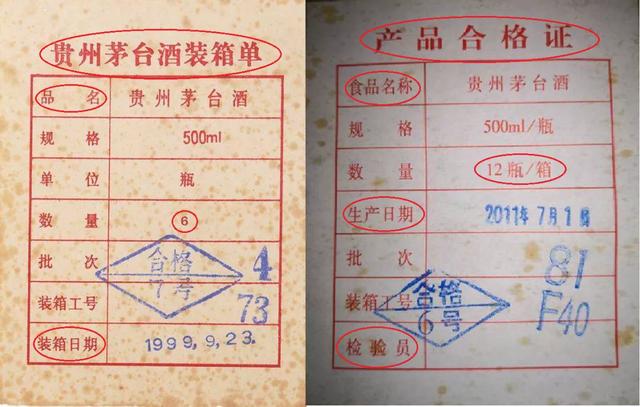 贵州茅台酒装箱单
品 名 贵州茅台酒
规 格 500ml
单 位 瓶
数 量 6
批 次 4
合格
7号
装箱工号 73
装箱日期 1999.9.23.
产品合格证
食品名称 贵州茅台酒
规 格 500ml/瓶
数 量 12瓶/箱
生产日期 2011年7月1日
批 次 81
合格
6号
装箱工号 F40
检验员